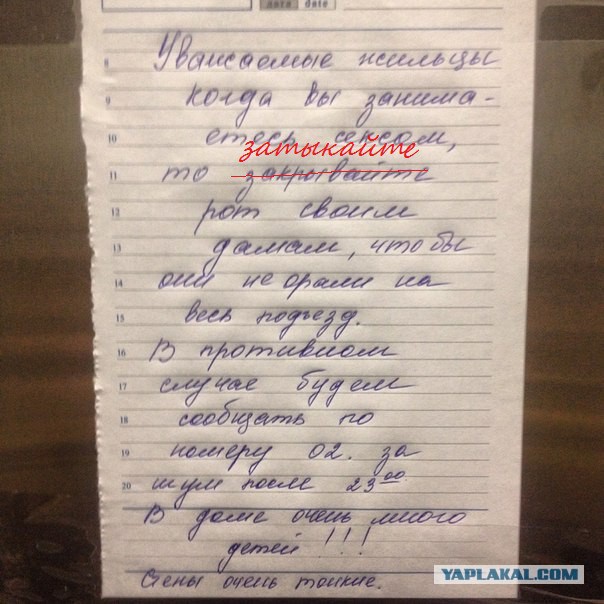 дата date
8 Уважаемые жильцы
9 когда вы занима-
10 етесь сексом,
затыкайте
11 то закрывайте
12 рот своим
13 дамам, чтобы
14 они не орали на
15 весь подъезд.
16 В противном
17 случае будем
18 сообщать по
19 номеру 02. за
20 шум после 23⁰⁰
В доме очень много
детей!!!
Стены очень тонкие.
YAPLAKAL.COM